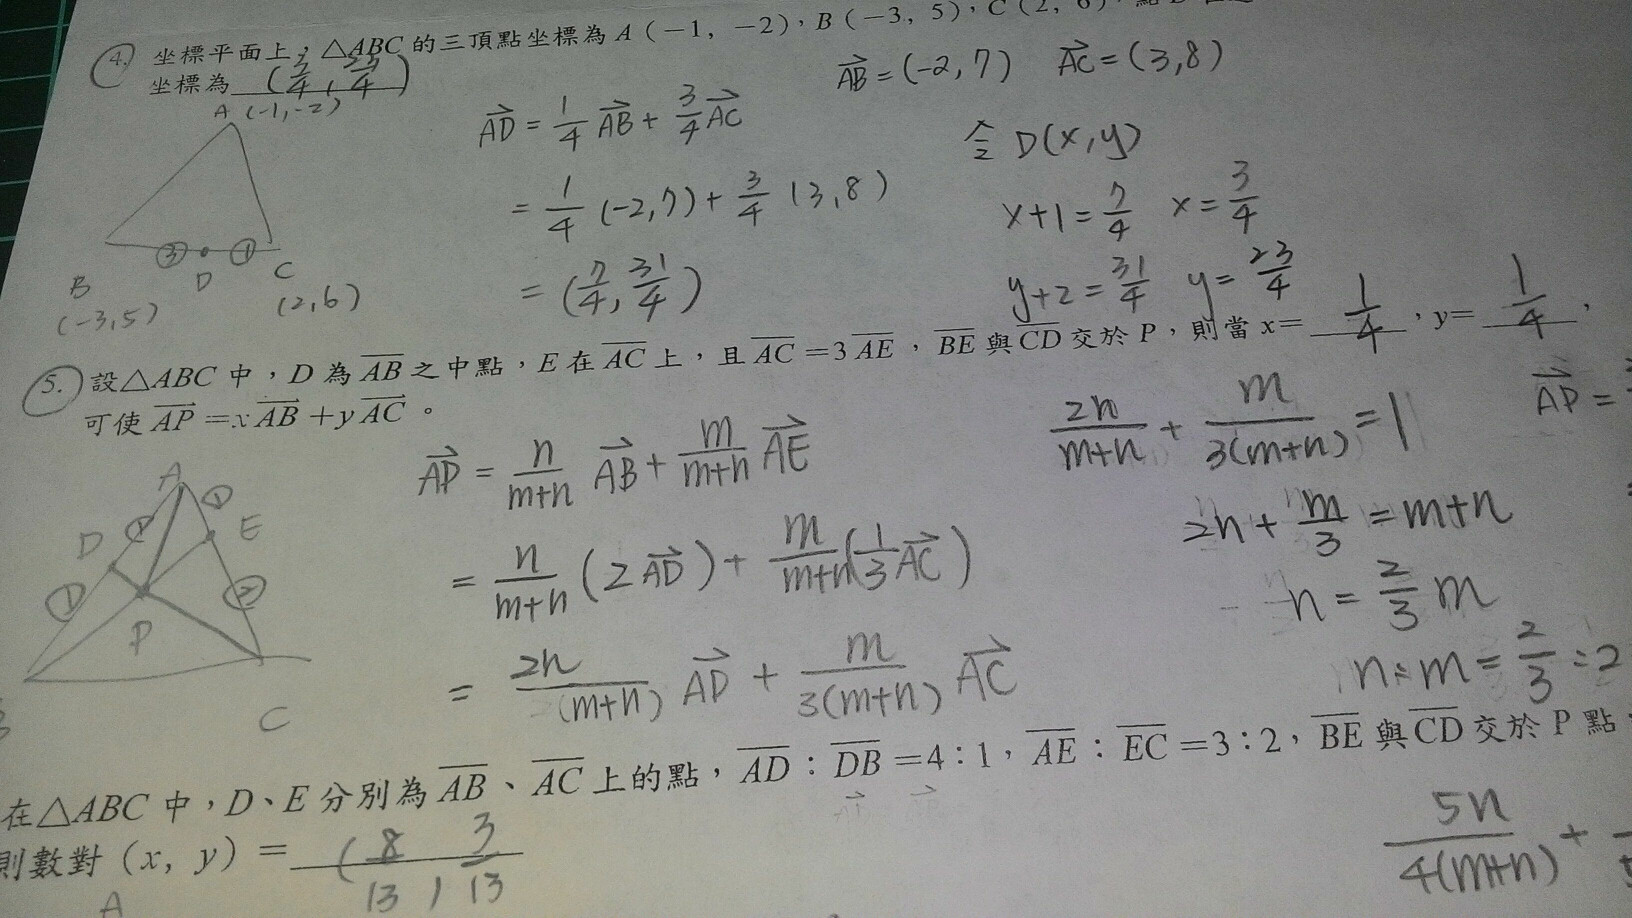 4. 坐標平面上,△ABC 的三頂點坐標為 A(-1, -2), B(-3, 5), C(2, 6),
坐標為 (3/4, 23/4)
A (-1,-2)
B
(-3,5)
③ D ①
C
(2,6)
AD = 1/4 AB + 3/4 AC
= 1/4 (-2,7) + 3/4 (3,8)
= (7/4, 31/4)
AB = (-2,7) AC = (3,8)
令 D(x,y)
x+1 = 7/4 x = 3/4
y+2 = 31/4 y = 23/4
5. 設△ABC 中,D 為 AB 之中點,E 在 AC 上,且 AC = 3AE,BE 與 CD 交於 P,則當 x = 1/4,y = 1/4,
可使 AP = xAB + yAC。
A
① ①
D E
① ②
P
C
AP = n/(m+n) AB + m/(m+n) AE
= n/(m+n) (2AD) + m/(m+n) (1/3 AC)
= 2n/(m+n) AD + m/3(m+n) AC
2n/(m+n) + m/3(m+n) = 1
2n + m/3 = m+n
n = 2/3 m
n:m = 2/3 : 2
AP =
在△ABC 中,D、E 分別為 AB、AC 上的點,AD:DB = 4:1,AE:EC = 3:2,BE 與 CD 交於 P 點
則數對 (x, y) = (8/13, 3/13
A
5n/4(m+n) +